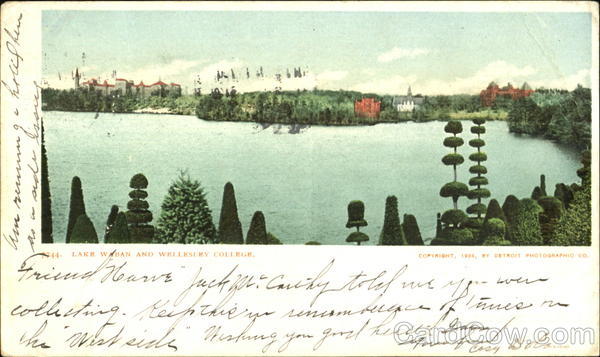 Am running a
as a side issue
7744. LAKE WABAN AND WELLESLEY COLLEGE.
COPYRIGHT, 1904, BY DETROIT PHOTOGRAPHIC CO.
Friend Harve" Jack McCarthy told me you were
collecting. Keep this in remembrance of times on
the "West side" Wishing you good health I am
Yours
Cozy
CardCow.com